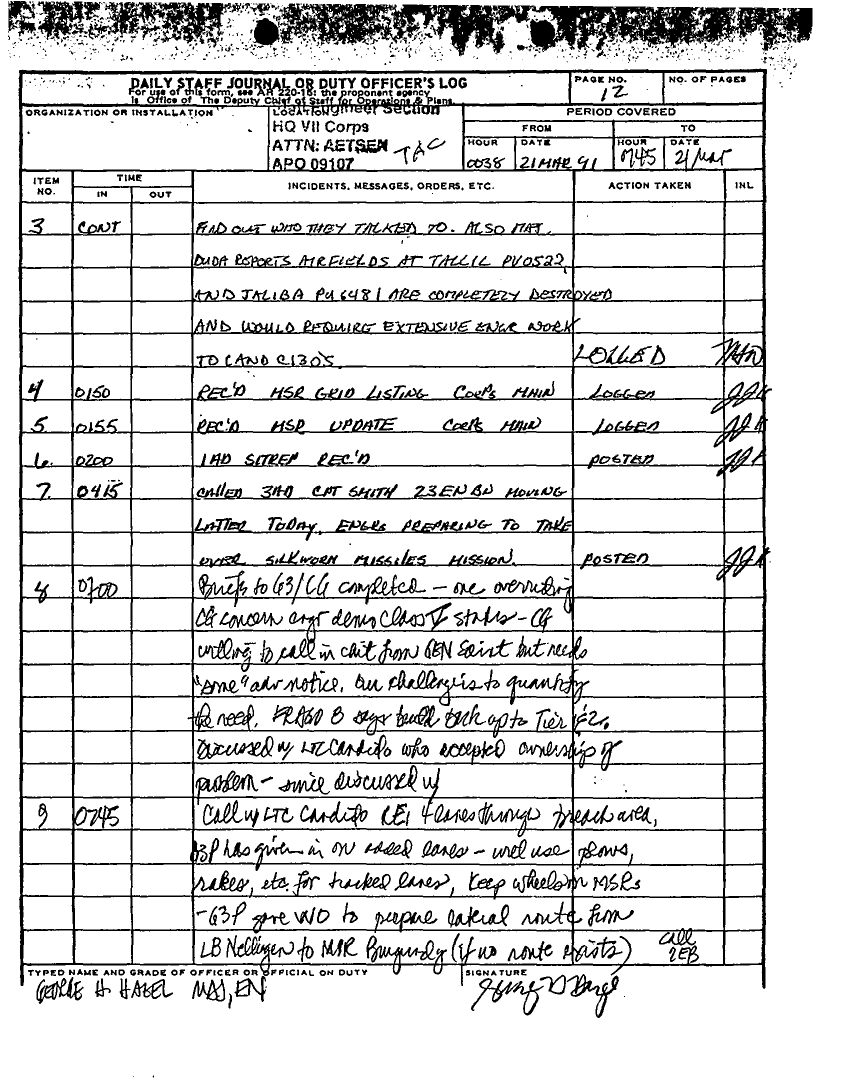 DAILY STAFF JOURNAL OR DUTY OFFICER'S LOG
For use of this form, see AR 220-15: the proponent agency
is Office of The Deputy Chief of Staff for Operations & Plans.
PAGE NO.
12
NO. OF PAGES
ORGANIZATION OR INSTALLATION
Engineer Section
HQ VII Corps
ATTN: AETSEN TAC
APO 09107
PERIOD COVERED
FROM TO
HOUR DATE HOUR DATE
0038 21 MAR 91 0745 21 Mar
ITEM NO. TIME INCIDENTS, MESSAGES, ORDERS, ETC. ACTION TAKEN INL
IN OUT
3 CONT FIND OUT WHO THEY TALKED TO. ALSO MAJ.
DUDA REPORTS AIRFIELDS AT TALLIL PV0522,
AND JALIBA PU6481 ARE COMPLETELY DESTROYED
AND WOULD REQUIRE EXTENSIVE ENGR WORK
TO LAND C130'S. LOGGED
4 0150 REC'D MSR GRID LISTING CORPS MAIN LOGGED
5 0155 REC'D MSR UPDATE CORPS MAIN LOGGED
6. 0200 1AD SITREP REC'D POSTED
7. 0415 CALLED 3AD CPT SMITH 23 EN BN MOVING
LATTER TODAY. ENGRS PREPARING TO TAKE
OVER SILKWORM MISSILES MISSION. POSTED
8 0700 Briefs to G3/CG completed - one overriding
CG concern engr demo Class V status - CG
willing to call in chit from GEN Saint but needs
"some" adv notice. Our challenge is to quantify
the need. FRAGO 8 says build back up to Tier 1 & 2.
Discussed w/ LTC Candido who accepted ownership of
problem - since discussed w/
9 0745 Call w/ LTC Candido RE: 4 lanes through breach area,
G3P has given in on added lanes - will use plows,
rakes, etc. for tracked lanes, keep wheels on MSRs
- G3P gave W/O to prepare lateral route from
LB Nellingen to MSR Burgundy (if no route exists) call
2EB
TYPED NAME AND GRADE OF OFFICER OR OFFICIAL ON DUTY
GEORGE H. HAZEL MAJ, EN
SIGNATURE